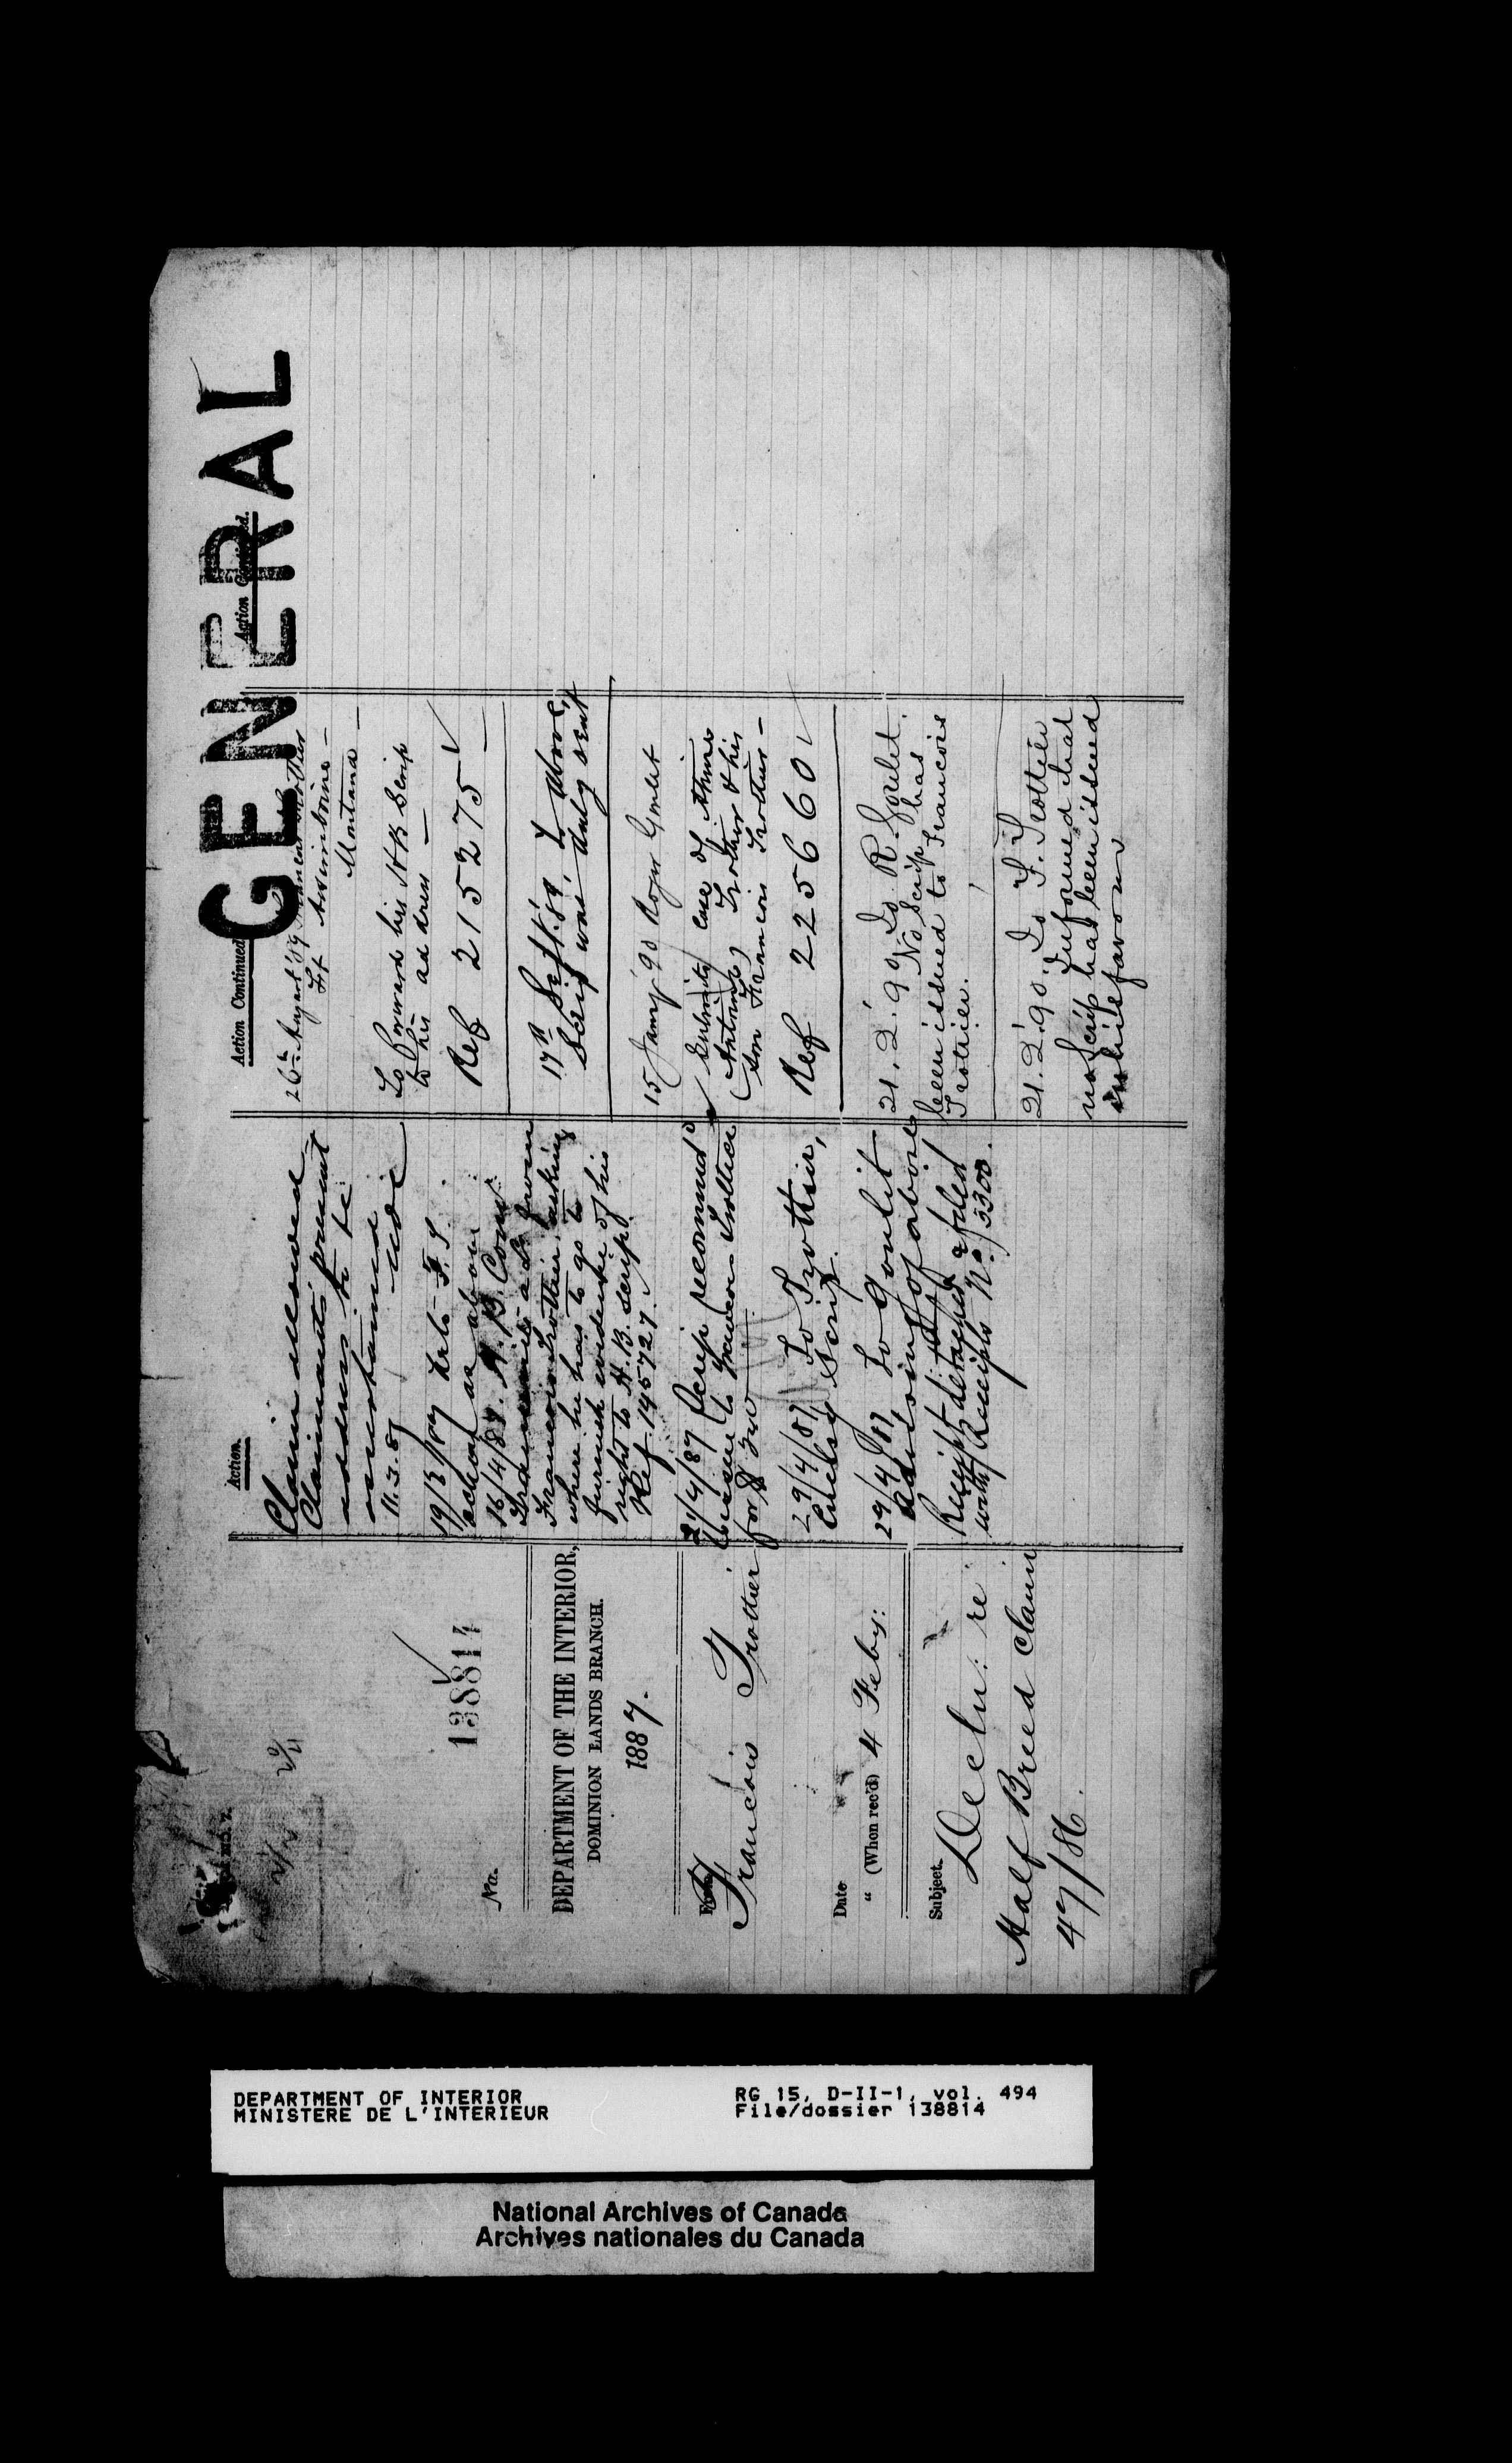 GENERAL
No.
138814
DEPARTMENT OF THE INTERIOR,
DOMINION LANDS BRANCH.
1887.
From
Francois Trottier
Date
" (When rec'd) 4 Feby:
Subject.
Decln: re
Half Breed Claim
47/86.
Action.
Claim allowed
Claimants present
address to be
ascertained
11.3.87
19/3/87
action as above
16/4/87. H.B. Com:
from
Francois Trottier, asking
where he has to go to
furnish evidence of his
right to H.B. scrip.
Ref. 145727.
21/4/87 Scrip recommd
to issue to Francois Trottier
for $
29/4/87 To Trottier,
Scrip.
29/4/87 To Goulet
advising of above
Receipt detached & filed
with Receipts No. 5300.
Action Continued
26th August '89 Trottier
Ft Assiniboine -
Montana -
To forward his HB Scrip
to his address -
Ref 215275
17th Sept. '89,
Scrip was duly sent
15 Jany '90 Roger Goulet
Submits case of
(Antoine) Trottier & his
son Francois Trottier -
Ref 225660
21.2.'90. To R. Goulet.
No Scrip has
been issued to Francois
Trottier.
21.2.'90. To F. Trottier
Informed that
no Scrip has been issued
in his favour
Action Continued.
DEPARTMENT OF INTERIOR
MINISTERE DE L'INTERIEUR
RG 15, D-II-1, vol. 494
File/dossier 138814
National Archives of Canada
Archives nationales du Canada